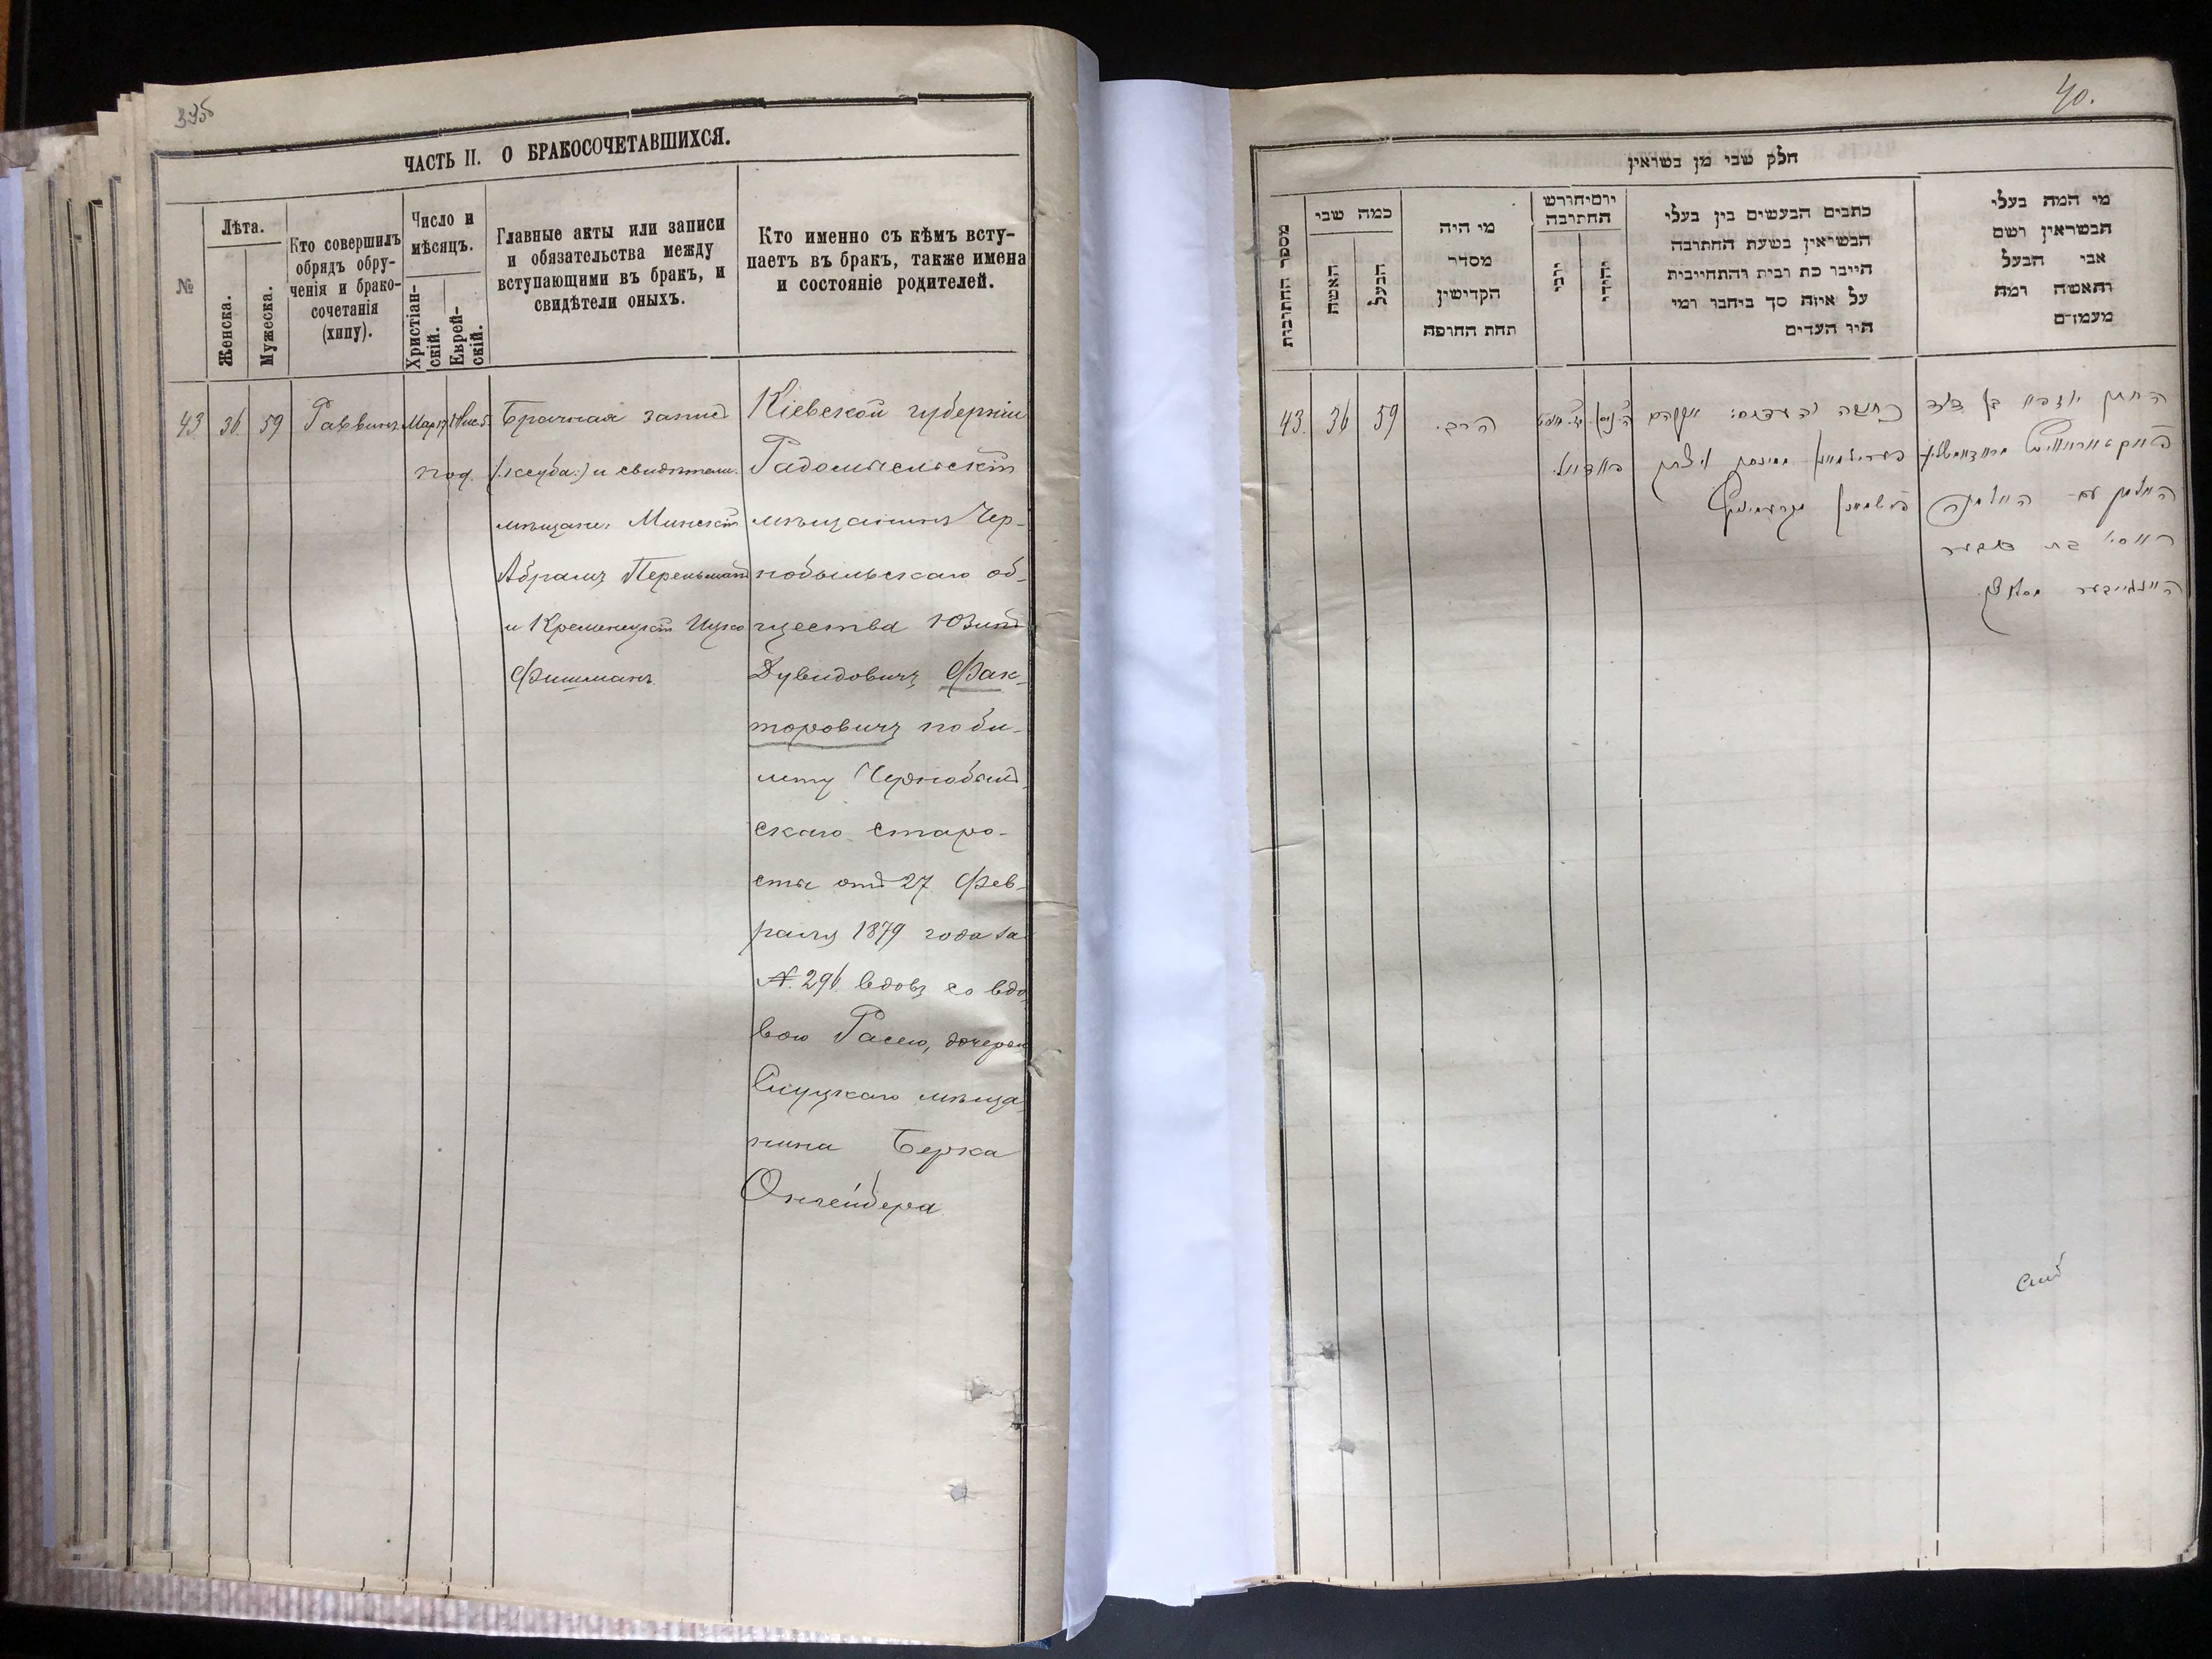 395
ЧАСТЬ II. О БРАКОСОЧЕТАВШИХСЯ.
№
Лѣта.
Женска.
Мужеска.
Кто совершилъ
обрядъ обру-
ченія и брако-
сочетанія
(хипу).
Число и
мѣсяцъ.
Христіан-
скій.
Еврей-
скій.
Главные акты или записи
и обязательства между
вступающими въ бракъ, и
свидѣтели оныхъ.
Кто именно съ кѣмъ всту-
паетъ въ бракъ, также имена
и состояніе родителей.
43.
36.
59
Раввинъ
Мар 17
Нис. 5.
Брачная запись
и свидѣтели:
мѣщане: Минскій
Абрамъ Перельманъ
и Кременецкій Ицко
Фишманъ.
Кіевской губерніи
Радомысльскій
мѣщанинъ Чер-
нобыльскаго об-
щества Юзипъ
Дувидовичъ Фак-
торовичъ по би-
лету Чернобыль-
скаго старо-
сты отъ 27 Фев-
раля 1879 года за
N. 296. вдовъ со вдо-
вою Расею, дочерью
Слуцкаго мѣща-
нина Берка
Онгейбера
40.
חלק שני מן נשואין
מספר החתונות
כמה שני
האשה
הבעל
מי היה
מסדר
הקדישין
תחת החופה
יום וחודש
החתונה
יוני
יהודי
כתבים הנעשים בין בעלי
הנשואין בשעת החתונה
היינו כת ובית והתחייבות
על איזה סך ביחבו ומי
היו העדים
מי המה בעלי
הנשואין ושם
אבי הבעל
והאשה ומה
מעמדם
43.
36
59
הרב.
החתן יוזפא בן דוד
פאקטאראוויץ מראדאמישליע
האלמן עם האלמנה
ראסי בת בערל